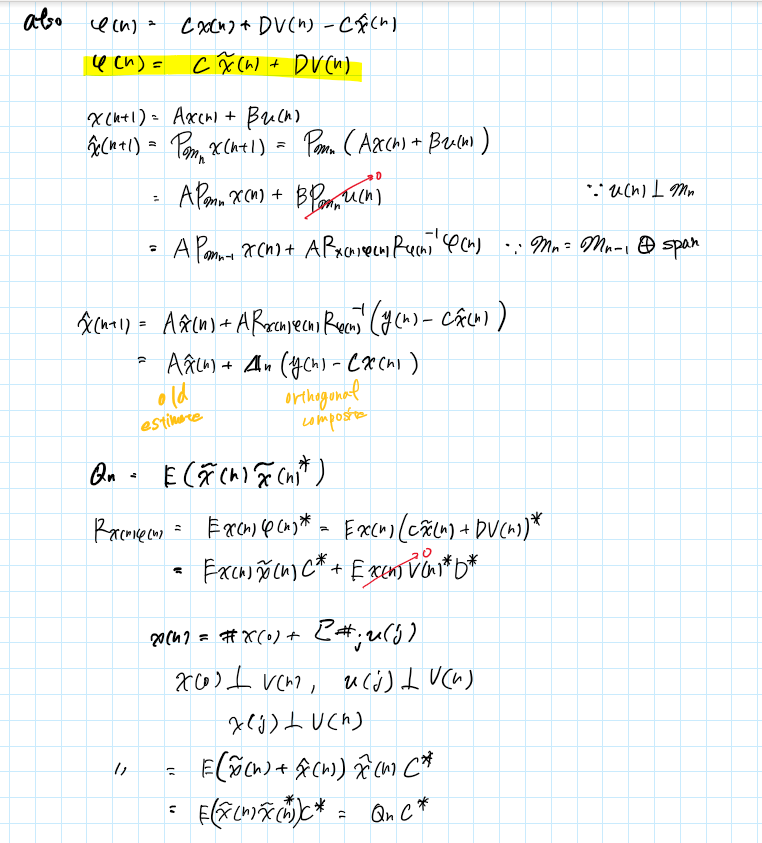 also φ(n) = Cx(n) + DV(n) - Cx̂(n)
φ(n) = C x̃(n) + DV(n)
x(n+1) = Ax(n) + Bu(n)
x̂(n+1) = P_{𝓜_n} x(n+1) = P_{𝓜_n} (Ax(n) + Bu(n))
= AP_{𝓜_n} x(n) + BP_{𝓜_n} u(n) 0 ∵ u(n) ⊥ 𝓜_n
= AP_{𝓜_{n-1}} x(n) + AR_{x(n)φ(n)} R_{φ(n)}^{-1} φ(n) ∵ 𝓜_n = 𝓜_{n-1} ⊕ span
x̂(n+1) = Ax̂(n) + AR_{x(n)φ(n)} R_{φ(n)}^{-1} (y(n) - Cx̂(n))
= Ax̂(n) + Δ_n (y(n) - Cx(n))
old orthogonal
estimate
Q_n = E(x̃(n) x̃(n)*)
R_{x(n)φ(n)} = Ex(n) φ(n)* = Ex(n) (Cx̃(n) + DV(n))*
= Ex(n) x̃(n) C* + Ex(n) V(n)* D* 0
x(n) = # x(0) + Σ #_j u(j)
x(0) ⊥ V(n), u(j) ⊥ V(n)
x(j) ⊥ V(n)
" = E(x̃(n) + x̂(n)) x̃(n) C*
= E(x̃(n) x̃(n)*) C* = Q_n C*